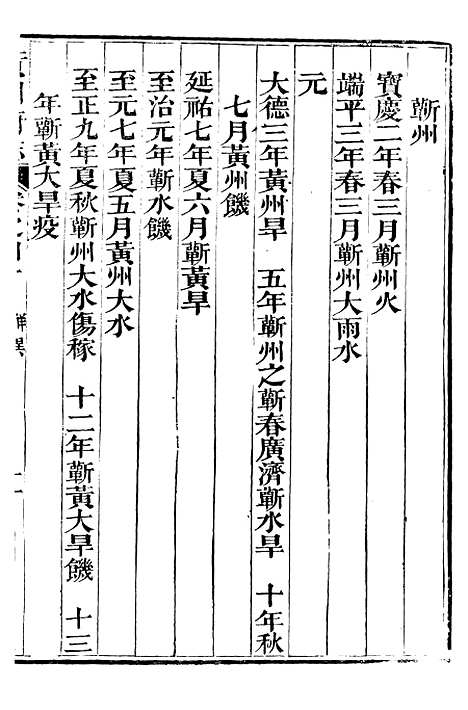 蘄州
寶慶二年春三月蘄州火
端平三年春三月蘄州大雨水
元
大德三年黃州旱　五年蘄州之蘄春廣濟蘄水旱　十年秋
七月黃州饑
延祐七年夏六月蘄黃旱
至治元年蘄水饑
至元七年夏五月黃州大水
至正九年夏秋蘄州大水傷稼　十二年蘄黃大旱饑　十三
年蘄黃大旱疫
祥異